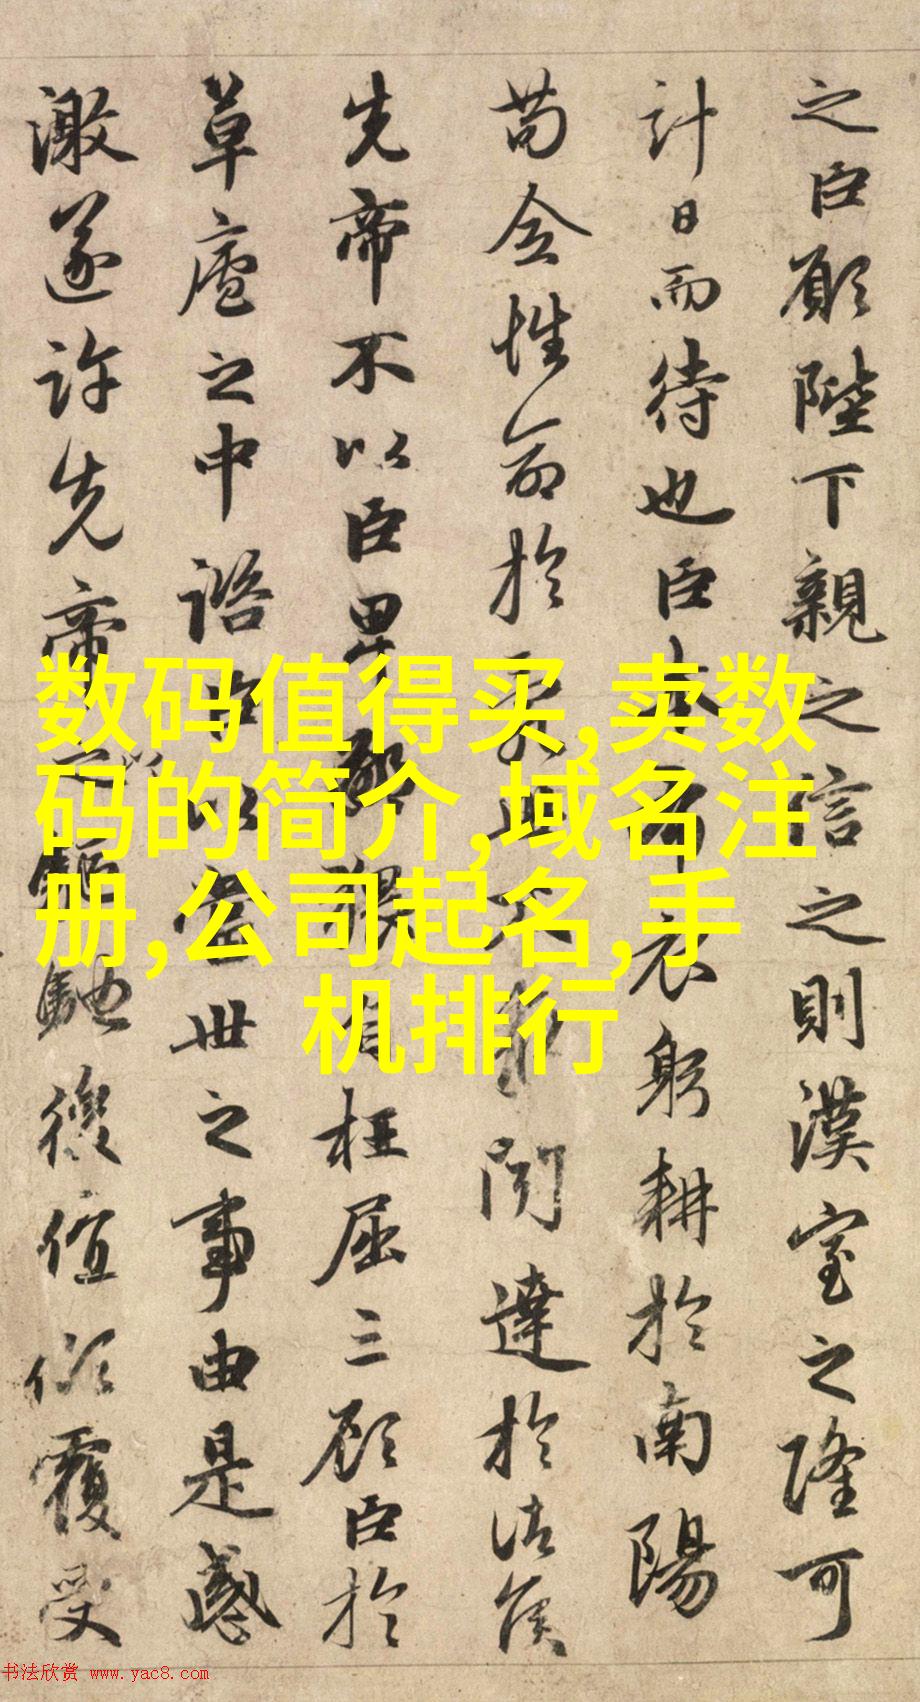 之臣願陛下親之信之則漢室之隆可
計日而待也臣本布衣躬耕於南陽
苟全性命於亂世不求聞達於諸侯
先帝不以臣卑鄙猥自枉屈三顧臣於
草廬之中諮臣以當世之事由是感
激遂許先帝之以驅馳後值傾覆受
数码值得买,卖数
码的简介,域名注
册,公司起名,手
机排行
书法欣赏 www.yac8.com